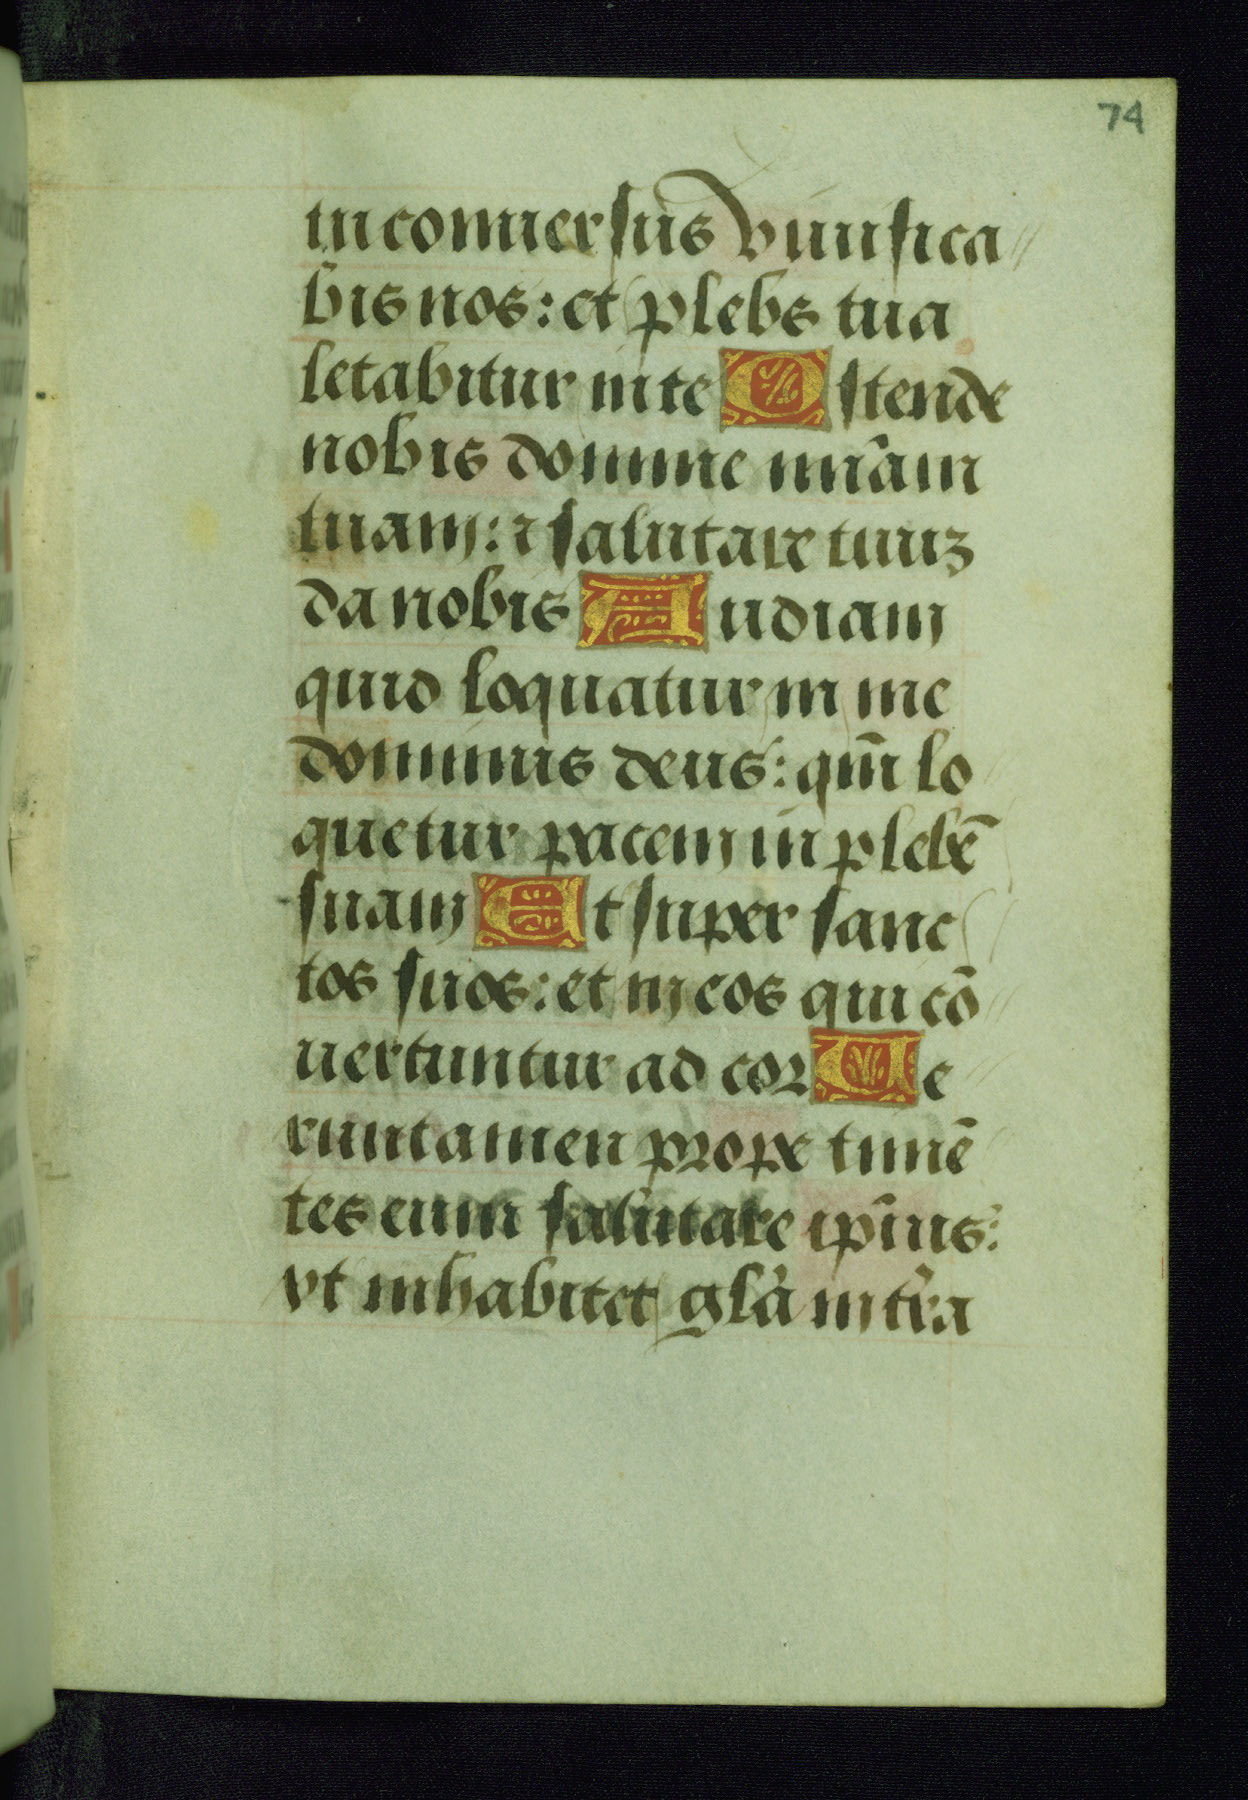 74
tu conuersus viuifica
bis nos: et plebs tua
letabitur in te Ostende
nobis domine mīam
tuam: ⁊ salutare tuuꝫ
da nobis Audiam
quid loquatur in me
dominus deus: qm̄ lo
quetur pacem in plebē
suam Et super sanc
tos suos: et in eos qui cō
uertuntur ad cor Ue
runtamen prope timē
tes eum salutare ipīus:
vt inhabitet glā in tr̄a